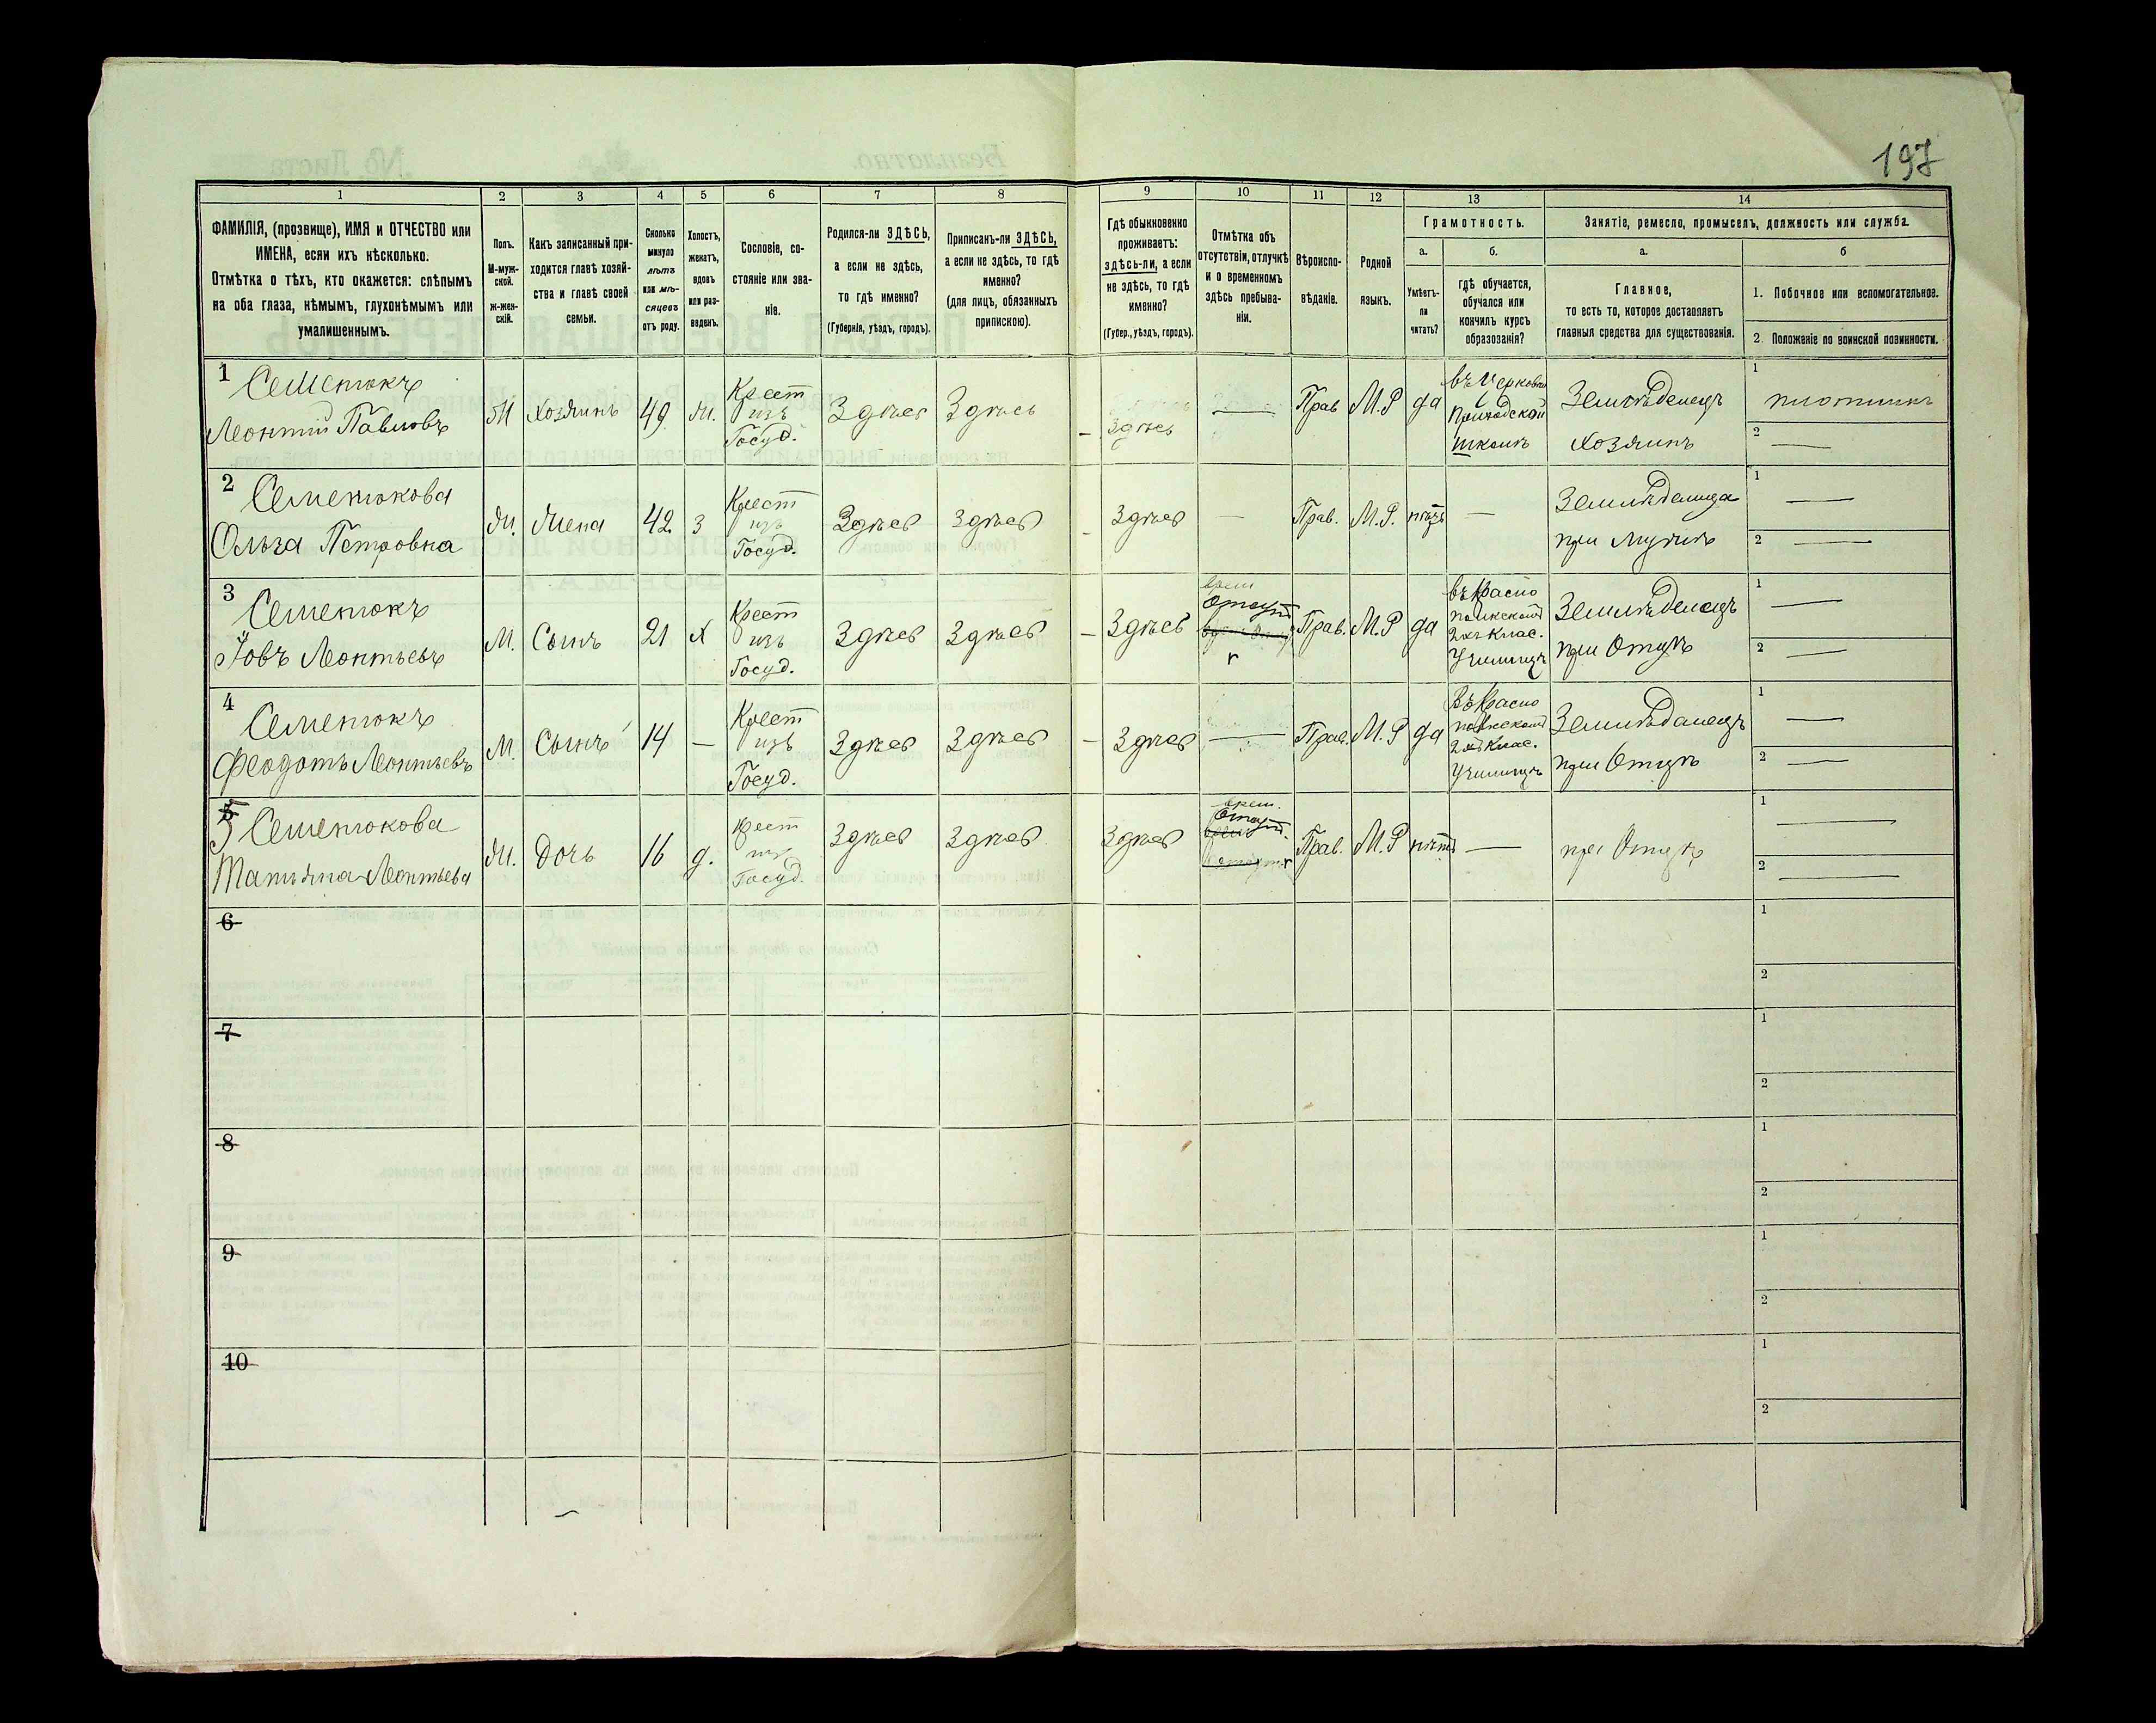 197
1 2 3 4 5 6 7 8 9 10 11 12 13 14
ФАМИЛІЯ, (прозвище), ИМЯ и ОТЧЕСТВО или
ИМЕНА, если ихъ нѣсколько.
Отмѣтка о тѣхъ, кто окажется: слѣпымъ
на оба глаза, нѣмымъ, глухонѣмымъ или
умалишеннымъ.
Полъ.
М-муж-
ской.
ж-жен-
скій.
Какъ записанный при-
ходится главѣ хозяй-
ства и главѣ своей
семьи.
Сколько
минуло
лѣтъ
или мѣ-
сяцевъ
отъ роду.
Холостъ,
женатъ,
вдовъ
или раз-
веденъ.
Сословіе, со-
стояніе или зва-
ніе.
Родился-ли ЗДѢСЬ,
а если не здѣсь,
то гдѣ именно?
(Губернія, уѣздъ, городъ).
Приписанъ-ли ЗДѢСЬ,
а если не здѣсь, то гдѣ
именно?
(для лицъ, обязанныхъ
припискою).
Гдѣ обыкновенно
проживаетъ:
здѣсь-ли, а если
не здѣсь, то гдѣ
именно?
(Губер., уѣздъ, городъ).
Отмѣтка объ
отсутствіи, отлучкѣ
и о временномъ
здѣсь пребыва-
ніи.
Вѣроиспо-
вѣданіе.
Родной
языкъ.
Грамотность.
а.
Умѣетъ-
ли
читать?
б.
гдѣ обучается,
обучался или
кончилъ курсъ
образованія?
Занятіе, ремесло, промыселъ, должность или служба.
а.
Главное,
то есть то, которое доставляетъ
главныя средства для существованія.
б
1. Побочное или вспомогательное.
2. Положеніе по воинской повинности.
1 Семенюкъ
Леонтій Павловъ
М Хозяинъ 49 ж.
Крест
изъ
Госуд.
Здѣсь Здѣсь Здѣсь — Прав М.Р да
въ Церковно
Приходской
школѣ
Земледѣлецъ
Хозяинъ
1 плотникъ
2 —
2 Семенюкова
Ольга Петровна
Ж. Жена 42 з
Крест
изъ
Госуд.
Здѣсь Здѣсь Здѣсь — Прав. М.Р. нѣтъ —
Земледѣлица
при Мужѣ
1 —
2 —
3 Семенюкъ
Іовъ Леонтьевъ
М. Сынъ 21 х
Крест
изъ
Госуд.
Здѣсь Здѣсь Здѣсь
врем
Отсут
г
Прав. М.Р да
2хъ клас.
Училищѣ
Земледѣлецъ
при Отцѣ
1 —
2 —
4 Семенюкъ
Феодотъ Леонтьевъ
М. Сынъ 14 —
Крест
изъ
Госуд.
Здѣсь Здѣсь Здѣсь — Прав. М.Р да
2хъ клас.
Училищѣ
Земледѣлецъ
при Отцѣ
1 —
2 —
5 Семенюкова
Татьяна Леонтьева
Ж. дочь 16 д.
Крест
изъ
Госуд.
Здѣсь Здѣсь Здѣсь
врем.
Отсут.
Прав. М.Р нѣтъ —
при Отцѣ
1 —
2 —
6
1
2
7
1
2
8
1
2
9
1
2
10
1
2